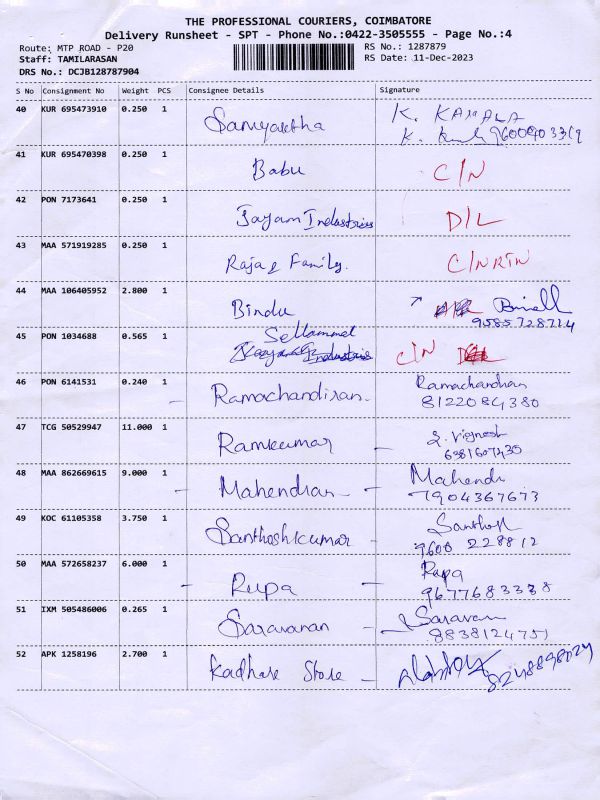 THE PROFESSIONAL COURIERS, COIMBATORE
Delivery Runsheet - SPT - Phone No.:0422-3505555 - Page No.:4
Route: MTP ROAD - P20 RS No.: 1287879
Staff: TAMILARASAN RS Date: 11-Dec-2023
DRS No.: DCJB128787904
S No Consignment No Weight PCS Consignee Details Signature
40 KUR 695473910 0.250 1 K. KAMALA
K.
41 KUR 695470398 0.250 1 Babu C/N
42 PON 7173641 0.250 1 Jayam Industries D/L
43 MAA 571919285 0.250 1 Raja & Family. C/N RTN
44 MAA 106405952 2.800 1 Bindu
9585728714
45 PON 1034688 0.565 1 Sellammel C/N
Industries
46 PON 6141531 0.240 1 Ramachandiran Ramachandran
8122084380
47 TCG 50529947 11.000 1 Ramkumar S. Vignesh
6381607435
48 MAA 862669615 9.000 1 Mahendran Mahendr
7904367673
49 KOC 61105358 3.750 1 Santhoshkumar Santhosh
9600 228812
50 MAA 572658237 6.000 1 Rupa Rupa
9677683338
51 IXM 505486006 0.265 1 Saravanan Saravan
8838124751
52 APK 1258196 2.700 1 Kadhare Store 8248898029